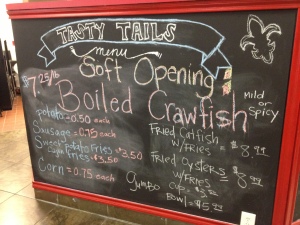 TASTY TAILS
menu
Soft Opening
$7.25/lb
Boiled Crawfish
Mild or Spicy
Potato = 0.50 each
Sausage = 0.75 each
Sweet Potato Fries = $3.50
Fries = $3.50
Corn = 0.75 each
Fried Catfish
w/Fries $8.99
Fried Oysters
w/Fries $8.99
Gumbo
Cup =
Bowl = $5.99